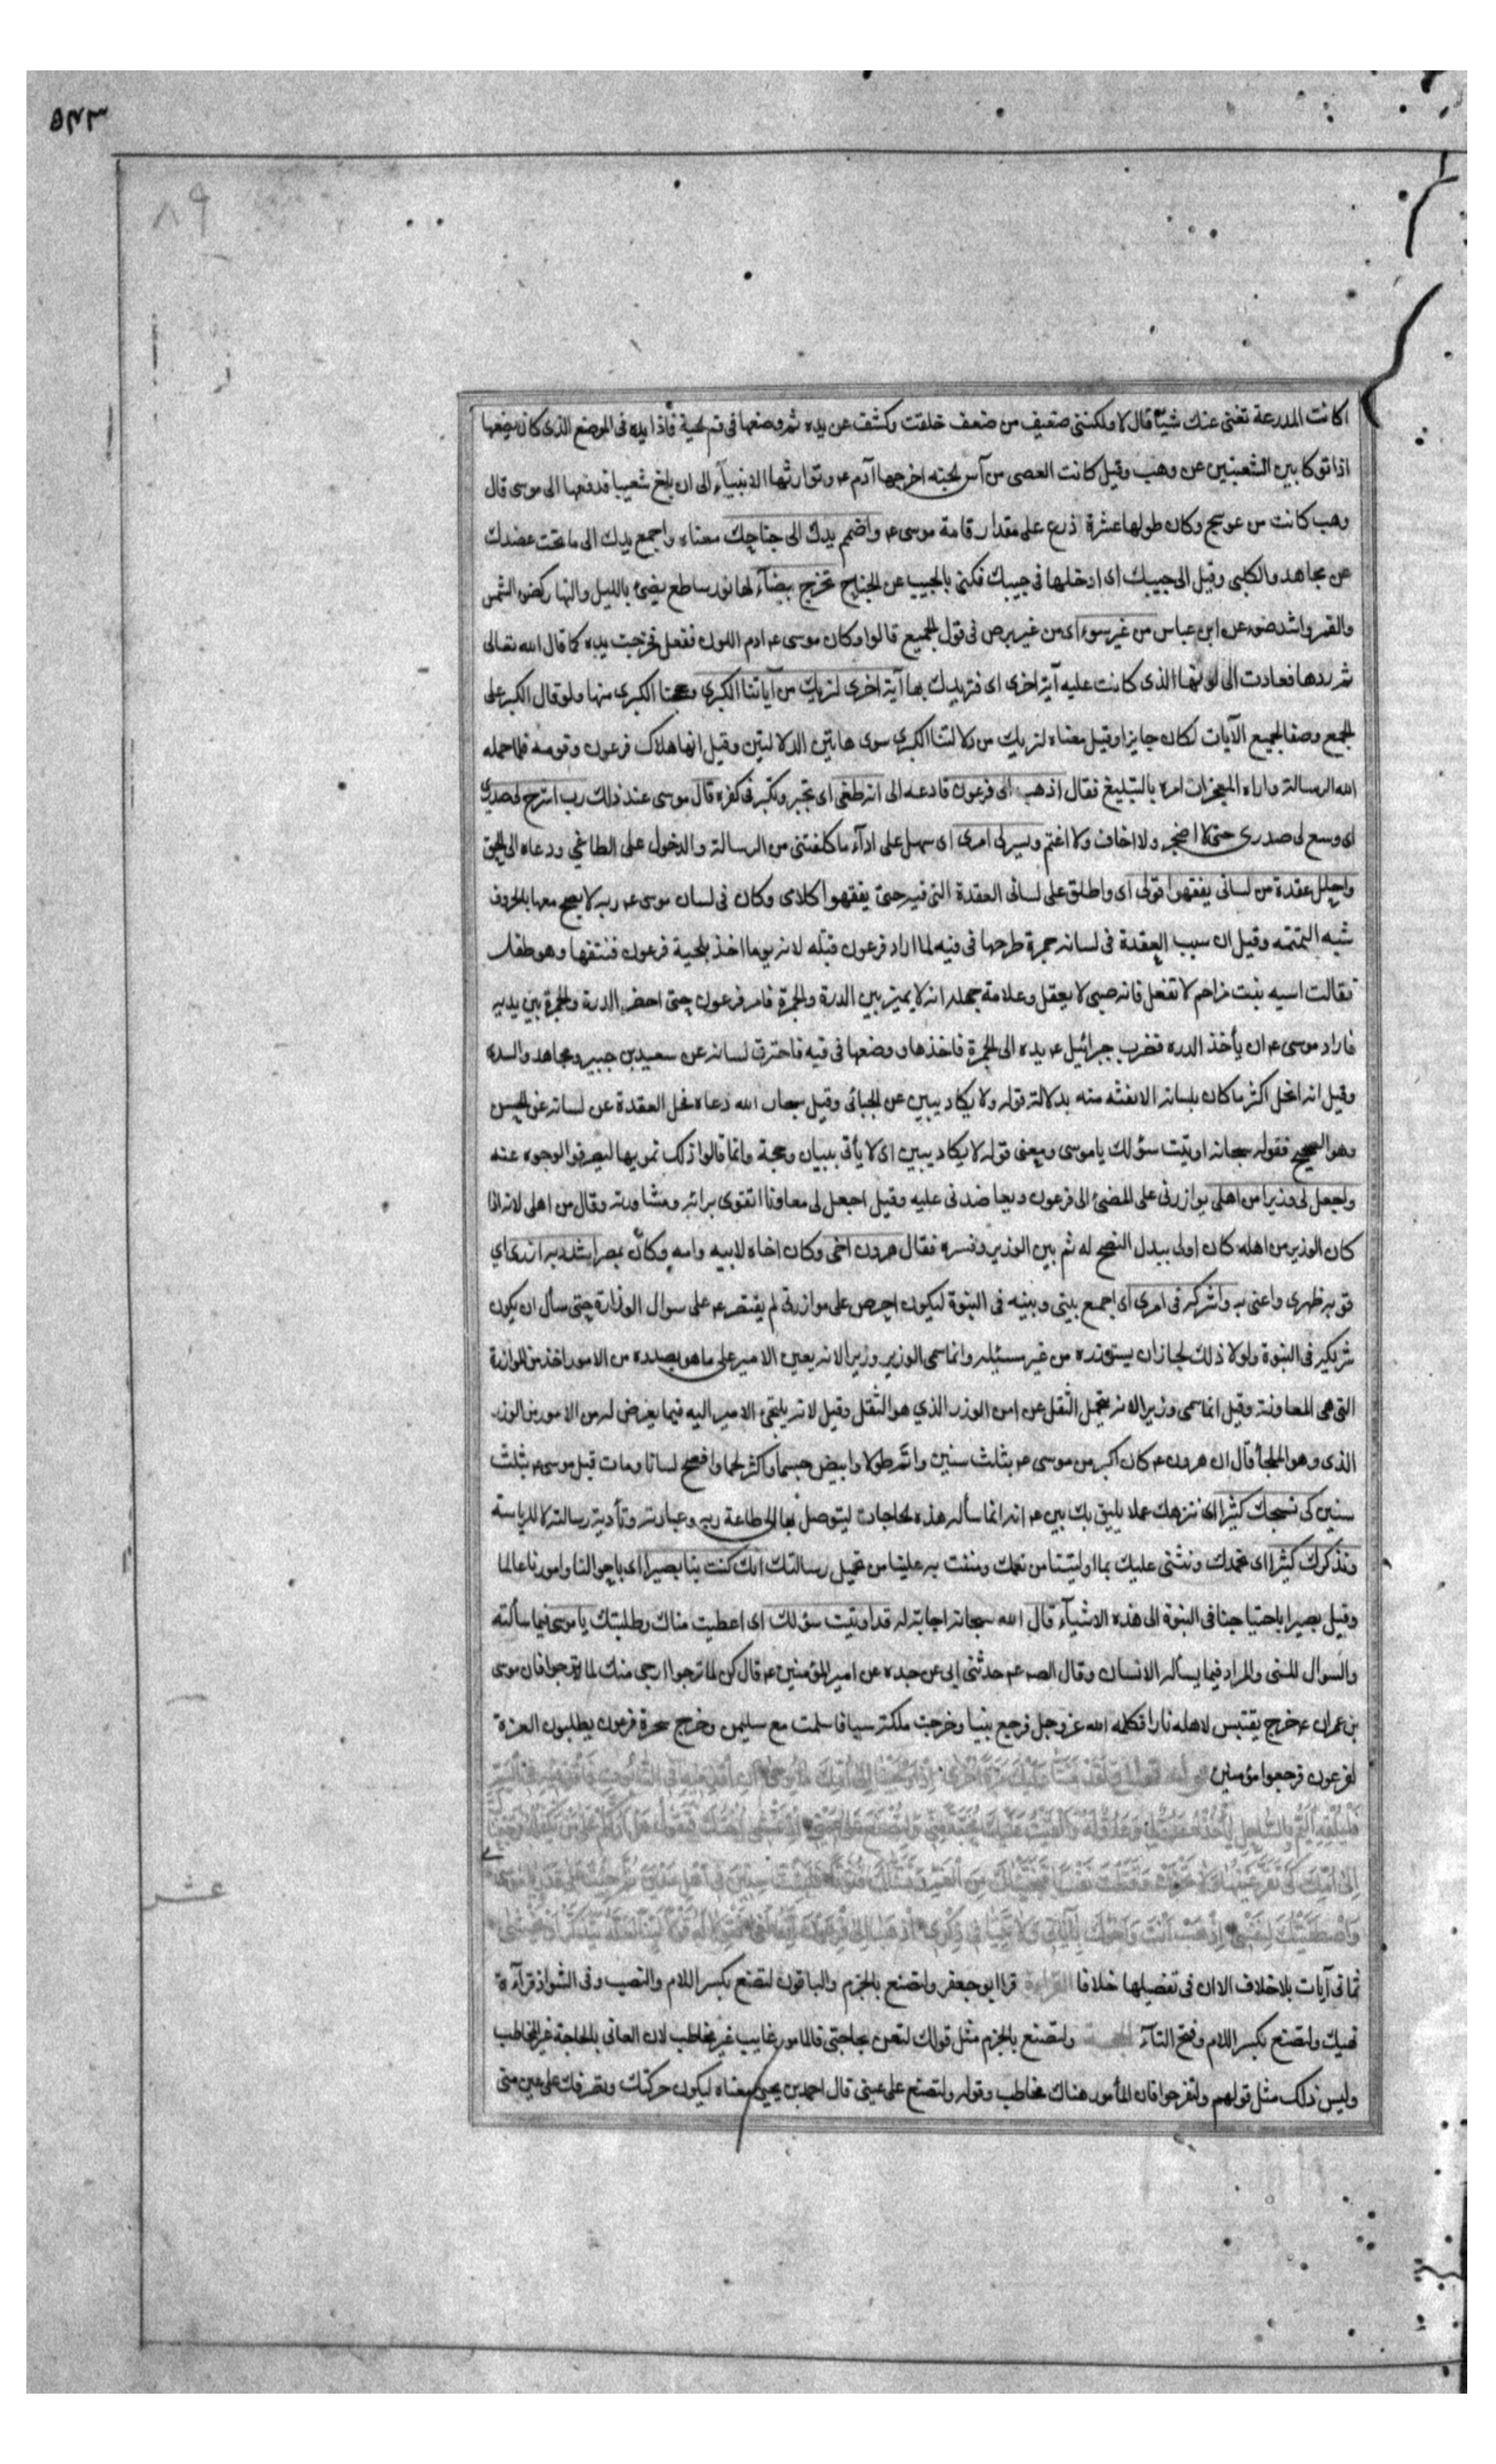 ٥٤٣
٨٩
اكانت المدرعة تغنى عنك شيئا قال لا ولكننى ضعيف من ضعف خلقت وكشف عن يده ثم وضعها فى فم الحية فاذا يده فى الموضع الذى كان يضعها
اذا توكا بين الشعبتين عن وهب وقيل كانت العصى من آس الجنه اخرجها آدم ع وتوارثها الانبيآء الى ان بلغ شعيبا فدفعها الى موسى قال
وهب كانت من عوسج وكان طولها عشرة اذرع على مقدار قامة موسى ع واضمم يدك الى جناحك معناه واجمع يدك الى ما تحت عضدك
عن مجاهد والكلبى وقيل الى جيبك اى ادخلها فى جيبك فكنى بالجيب عن الجناح تخرج بيضآء لها نور ساطع يضئ بالليل والنهار كضوء الشمس
والقمر واشد ضوء عن ابن عباس من غير سوء اى من غير برص فى قول الجميع قالوا وكان موسى ع ادم اللون ففعل فخرجت يده كما قال الله تعالى
ثم ردها فعادت الى لونها الذى كانت عليه آية اخرى اى فنزيدك بها آية اخرى لنريك من آياتنا الكبرى الكبرى منها ولو قال الكبر على
الجمع وصفا لجميع الآيات لكان جايزا وقيل معناه لنريك من دلالتنا الكبرى سوى هاتين الدلالتين وقيل انها هلاك فرعون وقومه فلما حمله
الله الرسالة واراه المعجزات امره بالتبليغ فقال اذهب الى فرعون فادعه الى انه طغى اى تجبر وتكبر فى كفره قال موسى عند ذلك رب اشرح لى صدرى
اى وسع لى صدرى حتى لا اضجر ولا اخاف ولا اغتم ويسر لى امرى اى سهل على ادآء ما كلفتنى من الرسالة والدخول على الطاغى ودعاه الى الحق
واحلل عقدة من لسانى يفقهوا قولى اى واطلق على لسانى العقدة التى فيه حتى يفقهوا كلامى وكان فى لسان موسى ع رتبه لا يفصح معها بالحروف
شبه التمتمه وقيل ان سبب العقدة فى لسانه جمرة طرحها فى فيه لما اراد فرعون قتله لانه يوما اخذ بلحية فرعون فنتفها وهو طفل
فقالت اسيه بنت مزاحم لا تفعل فانه صبى لا يعقل وعلامة جهله انه لا يميز بين الدرة والجمرة فامر فرعون حتى احضر الدرة والجمرة بين يديه
فاراد موسى ع ان يأخذ الدره فضرب جبرائيل ع يده الى الجمرة فاخذها ووضعها فى فيه فاحترق لسانه عن سعيد بن جبير ومجاهد والسدى
وقيل انه انحل اكثر ما كان بلسانه الا بقية منه بدلالة قوله ولا يكاد يبين عن الجبائى وقيل استجاب الله دعاه فحل العقدة عن لسانه عن الحسن
وهو الصحيح فقوله سبحانه اوتيت سؤلك يا موسى ومعنى قوله لا يكاد يبين اى لا يأتى ببيان وحجة وانما قالوا ذلك تمويها ليصرفوا الوجوه عنه
واجعل لى وزيرا من اهلى يوازرنى على المضئ الى فرعون ويعاضدنى عليه وقيل اجعل لى معاونا اتقوى برائه ومشاورته وقال من اهلى لانه اذا
كان الوزير من اهله كان اولى ببذل النصح له ثم بين الوزير وفسره فقال هرون اخى وكان اخاه لابيه وامه وكان بمصر اشدد به ازرى اى
قو به ظهرى واعنى به واشركه فى امرى اى اجمع بينى وبينه فى النبوة ليكون احرص على موازرتى لم يقتصر ع على سوال الوزارة حتى سأل ان يكون
شريكه فى النبوة ولولا ذلك لجاز ان يستوزره من غير مسئلة وانما سمى الوزير وزيرا لانه يعين الامير على ما هو بصدده من الامور اخذ من الموازرة
التى هى المعاونة وقيل انما سمى وزيرا لانه يتحمل الثقل عن امن الوزر الذي هو الثقل وقيل لانه يلتجئ الامير اليه فيما يعرض له من الامور من الوزر
الذى وهو الملجأ قال ان هرون ع كان اكبر من موسى ع بثلث سنين واتم طولا وابيض جسما واكثر لحما وافصح لسانا ومات قبل موسى ع بثلث
سنين كى نسبحك كثيرا اى ننزهك عما لا يليق بك بين ع انه انما سأله هذه الحاجات ليتوصل بها الى طاعة ربه وعبادته وتأدية رسالته لا للرياسة
ونذكرك كثيرا اى نحمدك ونثنى عليك بما اوليتنا من نعمك ومننت به علينا من تحميل رسالتك انك كنت بنا بصيرا اى باحوالنا وامورنا عالما
وقيل بصيرا باحتياجنا فى النبوة الى هذه الاشيآء قال الله سبحانه اجابة له قد اوتيت سؤلك اى اعطيت مناك وطلبتك يا موسى فيما سألته
والسوال المنى والمراد فيما يسأله الانسان وقال الصه ع حدثنى ابى عن جده عن امير المؤمنين ع قال كن لما ترجوا ارجى منك لما لا ترجوا فان موسى
بن عمران ع خرج يقتبس لاهله نارا فكلمه الله عز وجل فرجع نبيا وخرجت ملكة سبا فاسلمت مع سليمن وخرج سحرة فرعون يطلبون العزة
لفرعون فرجعوا مؤمنين ولقد مننا عليك مرة اخرى اذ اوحينا الى امك ما يوحى ان اقذفيه فى التابوت فاقذفيه فى اليم
فليلقه اليم بالساحل يأخذه عدو لى وعدو له والقيت عليك محبة منى ولتصنع على عينى اذ تمشى اختك فتقول هل ادلكم على من يكفله فرجعناك
الى امك كى تقر عينها ولا تحزن وقتلت نفسا فنجيناك من الغم وفتناك فتونا فلبثت سنين فى اهل مدين ثم جئت على قدر يا موسى
واصطنعتك لنفسى اذهب انت واخوك بآياتى ولا تنيا فى ذكرى اذهبا الى فرعون انه طغى فقولا له قولا لينا لعله يتذكر او يخشى
عشر
ثمانى آيات بلا خلاف الا ان فى تفصيلها خلافا القراءة قرا ابو جعفر ولتصنع بالجزم والباقون لتصنع بكسر اللام والنصب وفى الشواذ قرآءة
نهيك ولتصنع بكسر اللام وفتح التآء الحجة ولتصنع بالجزم مثل قولك لتعن بحاجتى فالمامور غايب غير مخاطب لان العانى بالحاجة غير المخاطب
وليس ذلك مثل قولهم ولتفرحوا فان المأمور هناك مخاطب وقوله ولتصنع على عينى قال احمد بن يحيى معناه ليكون حركتك وتصرفك على عين منى